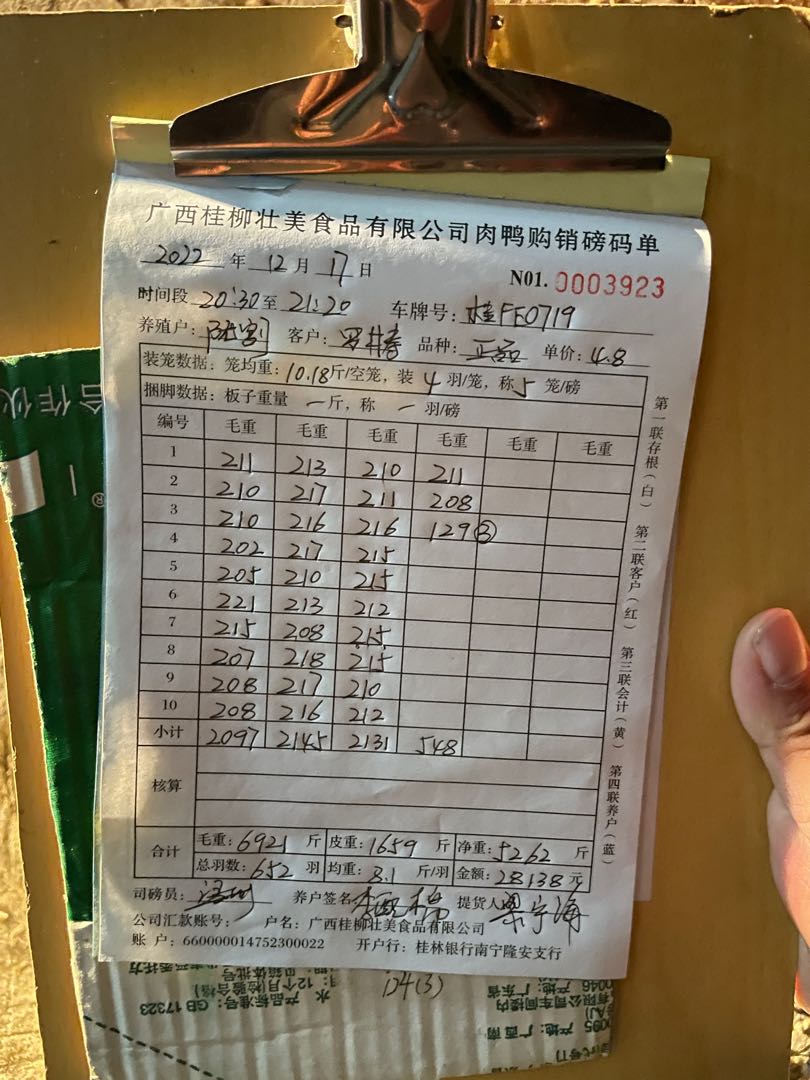 广西桂柳壮美食品有限公司肉鸭购销磅码单
2022 年 12 月 17 日 N01. 0003923
时间段 20:30 至 21:20 车牌号: 桂FE0719
养殖户: 客户: 品种: 正品 单价: 4.8
装笼数据: 笼均重: 10.18 斤/空笼, 装 4 羽/笼, 称 5 笼/磅
捆脚数据: 板子重量 一 斤, 称 一 羽/磅
编号 毛重 毛重 毛重 毛重 毛重 毛重
1 211 213 210 211
2 210 217 211 208
3 210 216 216 129③
4 202 217 215
5 205 210 215
6 221 213 212
7 215 208 215
8 207 218 215
9 208 217 210
10 208 216 212
小计 2097 2145 2131 548
核算
合计 毛重: 6921 斤 皮重: 1659 斤 净重: 5262 斤
总羽数: 652 羽 均重: 8.1 斤/羽 金额: 28138 元
司磅员: 养户签名 提货人 梁宇海
公司汇款账号: 户名: 广西桂柳壮美食品有限公司
账 户: 660000014752300022 开户行: 桂林银行南宁隆安支行
第一联存根(白) 第二联客户(红) 第三联会计(黄) 第四联养户(蓝)
合作伙
®
产品标准号: GB 17323
124(3)
产地: 广东省
产地: 广西南